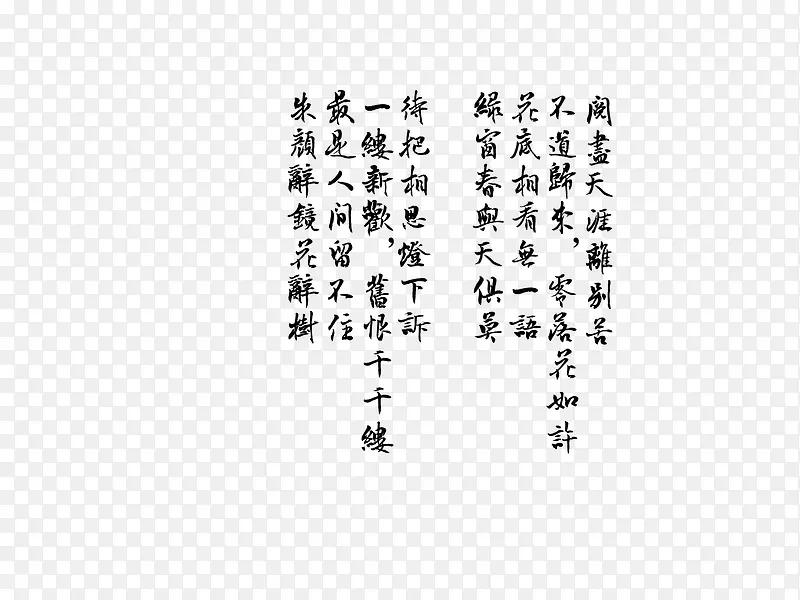 閱盡天涯離別苦
不道歸來，零落花如許
花底相看無一語
綠窗春與天俱莫
待把相思燈下訴
一縷新歡，舊恨千千縷
最是人间留不住
朱顏辭鏡花辭樹